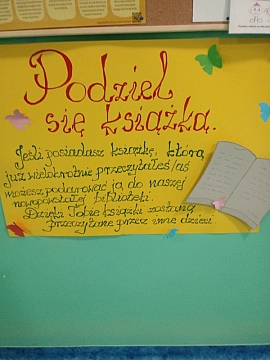 Podziel
się książką.
Jeśli posiadasz książkę, którą
już wielokrotnie przeczytałeś/aś
możesz podarować ją do naszej
nowopowstałej biblioteki.
Dzięki Tobie książki zostaną
przeczytane przez inne dzieci